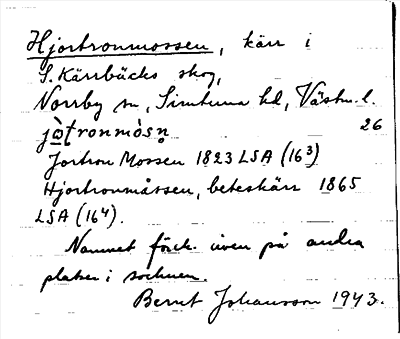 Hjortronmossen, kärr i
S. Kärrbäcks skog,
Norrby sn, Simtuna hd, Västm. l.
26
jò̀ṭronmòsn̥
Jortron Mossen 1823 LSA (16³)
Hjortronmåssen, beteskärr 1865
LSA (16⁴).
Namnet förek. även på andra
platser i socknen.
Bernt Johansson 1943.